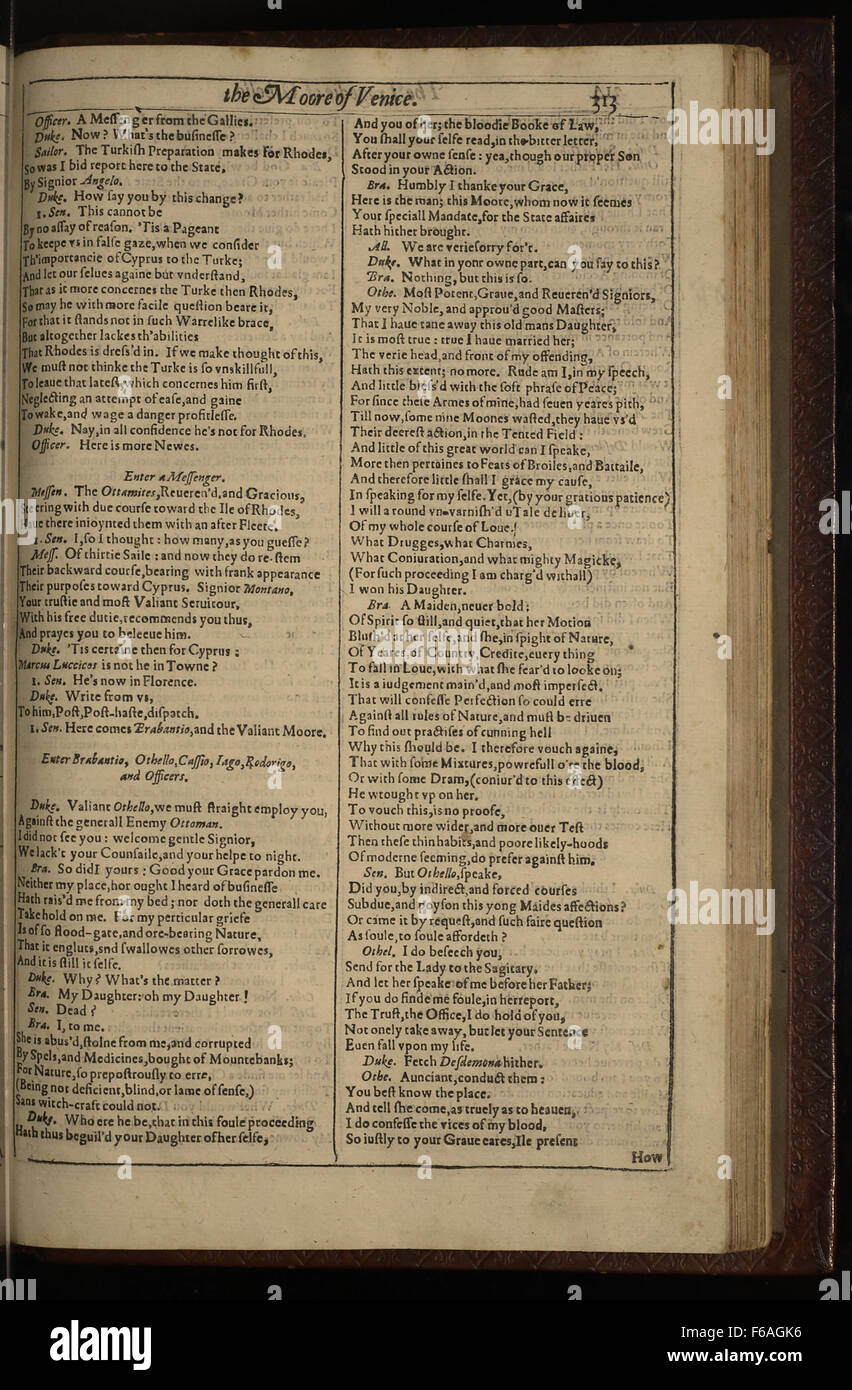 the Moore of Venice. 313
Officer. A Meſſenger from the Gallies.
Duke. Now? What's the buſineſſe?
Sailor. The Turkiſh Preparation makes for Rhodes,
So was I bid report here to the State,
By Signior Angelo.
Duke. How ſay you by this change?
1. Sen. This cannot be
By no aſſay of reaſon. 'Tis a Pageant
To keepe vs in falſe gaze, when we conſider
Th'importancie of Cyprus to the Turke;
And let our ſelues againe but vnderſtand,
That as it more concernes the Turke then Rhodes,
So may he with more facile queſtion beare it,
For that it ſtands not in ſuch Warrelike brace,
But altogether lackes th'abilities
That Rhodes is dreſs'd in. If we make thought of this,
We muſt not thinke the Turke is ſo vnskillfull,
To leaue that lateſt, which concernes him firſt,
Neglecting an attempt of eaſe, and gaine
To wake, and wage a danger profitleſſe.
Duke. Nay, in all confidence he's not for Rhodes.
Officer. Here is more Newes.
Enter a Meſſenger.
Meſſen. The Ottamites, Reueren'd, and Gracious,
Steering with due courſe toward the Ile of Rhodes,
Haue there inioynted them with an after Fleete.
1. Sen. I, ſo I thought: how many, as you gueſſe?
Meſſ. Of thirtie Saile: and now they do re-ſtem
Their backward courſe, bearing with frank appearance
Their purpoſes toward Cyprus. Signior Montano,
Your truſtie and moſt Valiant Seruitour,
With his free dutie, recommends you thus,
And prayes you to beleeue him.
Duke. 'Tis certaine then for Cyprus:
Marcus Luccicos is not he in Towne?
1. Sen. He's now in Florence.
Duke. Write from vs,
To him, Poſt, Poſt-haſte, diſpatch.
1. Sen. Here comes Brabantio, and the Valiant Moore.
Enter Brabantio, Othello, Caſſio, Iago, Rodorigo,
and Officers.
Duke. Valiant Othello, we muſt ſtraight employ you,
Againſt the generall Enemy Ottoman.
I did not ſee you: welcome gentle Signior,
We lack't your Counſaile, and your helpe to night.
Bra. So did I yours: Good your Grace pardon me.
Neither my place, hor ought I heard of buſineſſe
Hath rais'd me from my bed; nor doth the generall care
Take hold on me. For my perticular griefe
Is of ſo flood-gate, and ore-bearing Nature,
That it engluts, snd ſwallowes other ſorrowes,
And it is ſtill it ſelfe.
Duke. Why? What's the matter?
Bra. My Daughter: oh my Daughter!
Sen. Dead?
Bra. I, to me.
She is abus'd, ſtolne from me, and corrupted
By Spels, and Medicines, bought of Mountebanks;
For Nature, ſo prepoſtrouſly to erre,
(Being not deficient, blind, or lame of ſenſe,)
Sans witch-craft could not.
Duke. Who ere he be, that in this foule proceeding
Hath thus beguil'd your Daughter of her ſelfe,
And you of her; the bloodie Booke of Law,
You ſhall your ſelfe read, in the bitter letter,
After your owne ſenſe: yea, though our proper Son
Stood in your Action.
Bra. Humbly I thanke your Grace,
Here is the man; this Moore, whom now it ſeemes
Your ſpeciall Mandate, for the State affaires
Hath hither brought.
All. We are verie ſorry for't.
Duke. What in yonr owne part, can you ſay to this?
Bra. Nothing, but this is ſo.
Othe. Moſt Potent, Graue, and Reueren'd Signiors,
My very Noble, and approu'd good Maſters;
That I haue tane away this old mans Daughter,
It is moſt true: true I haue married her;
The verie head, and front of my offending,
Hath this extent; no more. Rude am I, in my ſpeech,
And little bleſs'd with the ſoft phraſe of Peace;
For ſince theſe Armes of mine, had ſeuen yeares pith,
Till now, ſome nine Moones waſted, they haue vs'd
Their deereſt action, in the Tented Field:
And little of this great world can I ſpeake,
More then pertaines to Feats of Broiles, and Battaile,
And therefore little ſhall I grace my cauſe,
In ſpeaking for my ſelfe. Yet, (by your gratious patience)
I will a round vn-varniſh'd uTale deliuer,
Of my whole courſe of Loue.
What Drugges, what Charmes,
What Coniuration, and what mighty Magicke,
(For ſuch proceeding I am charg'd withall)
I won his Daughter.
Bra. A Maiden, neuer bold:
Of Spirit ſo ſtill, and quiet, that her Motion
Bluſh'd at her ſelfe, and ſhe, in ſpight of Nature,
Of Yeares, of Country, Credite, euery thing
To fall in Loue, with what ſhe fear'd to looke on;
It is a iudgement main'd, and moſt imperfect.
That will confeſſe Perfection ſo could erre
Againſt all rules of Nature, and muſt be driuen
To find out practiſes of cunning hell
Why this ſhould be. I therefore vouch againe,
That with ſome Mixtures, powrefull o're the blood,
Or with ſome Dram, (coniur'd to this effect)
He wtought vp on her.
To vouch this, is no proofe,
Without more wider, and more ouer Teſt
Then theſe thin habits, and poore likely-hoods
Of moderne ſeeming, do prefer againſt him.
Sen. But Othello, ſpeake,
Did you, by indirect, and forced courſes
Subdue, and poyſon this yong Maides affections?
Or came it by requeſt, and ſuch faire queſtion
As ſoule, to ſoule affordeth?
Othel. I do beſeech you,
Send for the Lady to the Sagitary,
And let her ſpeake of me before her Father;
If you do finde me foule, in her report,
The Truſt, the Office, I do hold of you,
Not onely take away, but let your Sentence
Euen fall vpon my life.
Duke. Fetch Deſdemona hither.
Othe. Aunciant, conduct them:
You beſt know the place.
And tell ſhe come, as truely as to heauen,
I do confeſſe the vices of my blood,
So iuſtly to your Graue eares, Ile preſent
How
alamy
Image ID: F6AGK6
www.alamy.com